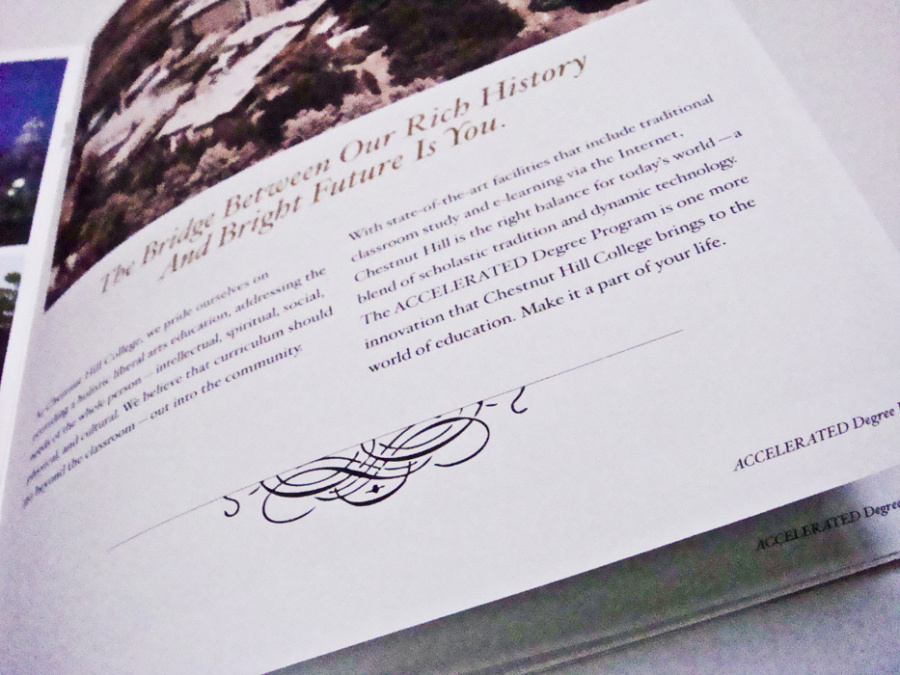 The Bridge Between Our Rich History
And Bright Future Is You.
At Chestnut Hill College, we pride ourselves on
providing a holistic liberal arts education, addressing the
needs of the whole person — intellectual, spiritual, social,
physical, and cultural. We believe that curriculum should
go beyond the classroom — out into the community.
With state-of-the-art facilities that include traditional
classroom study and e-learning via the Internet,
Chestnut Hill is the right balance for today's world — a
blend of scholastic tradition and dynamic technology.
The ACCELERATED Degree Program is one more
innovation that Chestnut Hill College brings to the
world of education. Make it a part of your life.
ACCELERATED Degree
ACCELERATED Degree